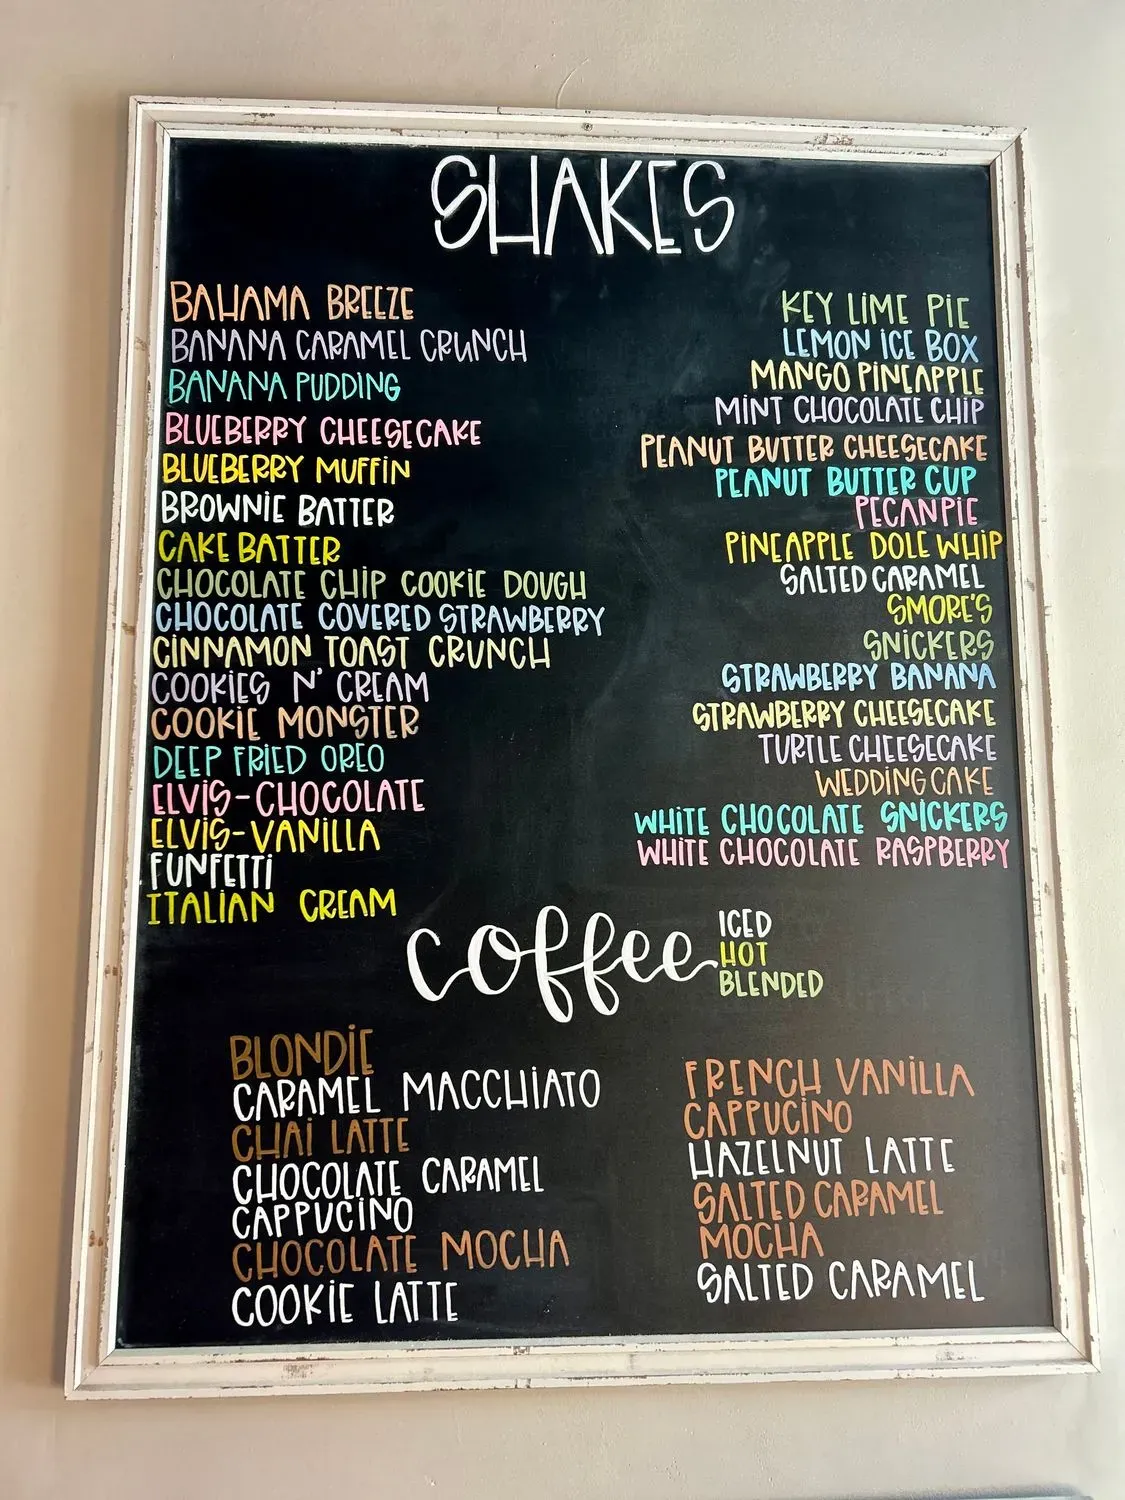 SHAKES
BAHAMA BREEZE
BANANA CARAMEL CRUNCH
BANANA PUDDING
BLUEBERRY CHEESECAKE
BLUEBERRY MUFFIN
BROWNIE BATTER
CAKE BATTER
CHOCOLATE CHIP COOKIE DOUGH
CHOCOLATE COVERED STRAWBERRY
CINNAMON TOAST CRUNCH
COOKIES N' CREAM
COOKIE MONSTER
DEEP FRIED OREO
ELVIS-CHOCOLATE
ELVIS-VANILLA
FUNFETTI
ITALIAN CREAM
KEY LIME PIE
LEMON ICE BOX
MANGO PINEAPPLE
MINT CHOCOLATE CHIP
PEANUT BUTTER CHEESECAKE
PEANUT BUTTER CUP
PECAN PIE
PINEAPPLE DOLE WHIP
SALTED CARAMEL
SMORE'S
SNICKERS
STRAWBERRY BANANA
STRAWBERRY CHEESECAKE
TURTLE CHEESECAKE
WEDDING CAKE
WHITE CHOCOLATE SNICKERS
WHITE CHOCOLATE RASPBERRY
coffee
ICED
HOT
BLENDED
BLONDIE
CARAMEL MACCHIATO
CHAI LATTE
CHOCOLATE CARAMEL
CAPPUCINO
CHOCOLATE MOCHA
COOKIE LATTE
FRENCH VANILLA
CAPPUCINO
HAZELNUT LATTE
SALTED CARAMEL
MOCHA
SALTED CARAMEL